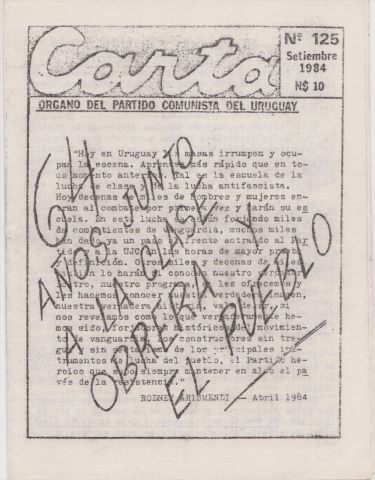 Carta
Nº 125
Setiembre
1984
N$ 10
ORGANO DEL PARTIDO COMUNISTA DEL URUGUAY
"Hoy en Uruguay las masas irrumpen y ocu-
pan la escena. Aprenden más rápido que en to-
do momento anterior. Tal es la escuela de la
lucha de clases, de la lucha antifascista.
Hoy decenas de miles de hombres y mujeres en-
traran al combate por primera vez y harán su es
cuela. En esta lucha se están forjando miles
de combatientes de vanguardia, muchos miles
han dado ya un paso al frente entrando al Par
tido y a la UJC en las horas de mayor
definición. Otros miles y decenas de miles
lo harán al conocer nuestro
nuestro programa, si les ofrecemos y
les hacemos conocer nuestra verdadera imagen,
nuestra verdadera historia, vale decir, si
nos revelamos como lo que verdaderamente he-
mos sido, forjadores históricos del movimien-
to de vanguardia, constructores sin tre-
gua y sin de los principales ins-
trumentos de lucha del pueblo, el Partido he-
roico que supo siempre mantener en alto el pa
vés de la resistencia."
RODNEY ARISMENDI — Abril 1984
64
AÑOS JUNTO
A LA CLASE
OBRERA Y
EL PUEBLO